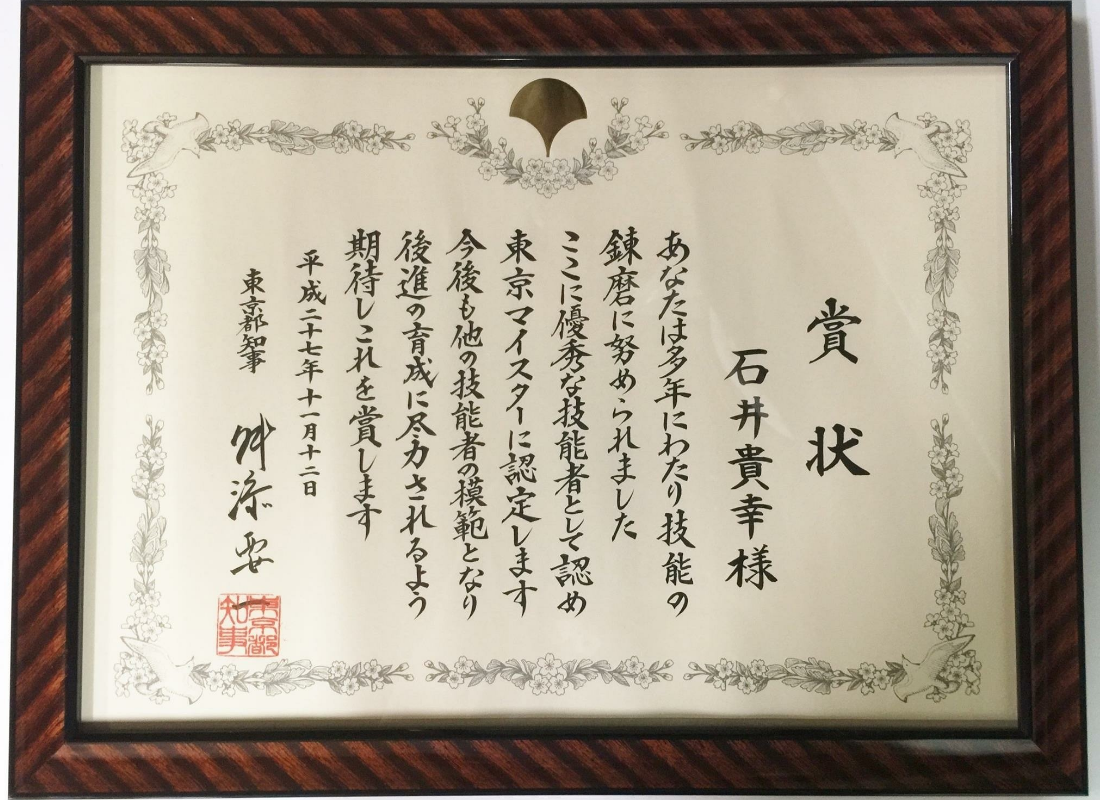 賞状
石井貴幸様
あなたは多年にわたり技能の
錬磨に努められました
ここに優秀な技能者として認め
東京マイスターに認定します
今後も他の技能者の模範となり
後進の育成に尽力されるよう
期待しこれを賞します
平成二十七年十一月十二日
東京都知事 舛添要一
東京都
知事